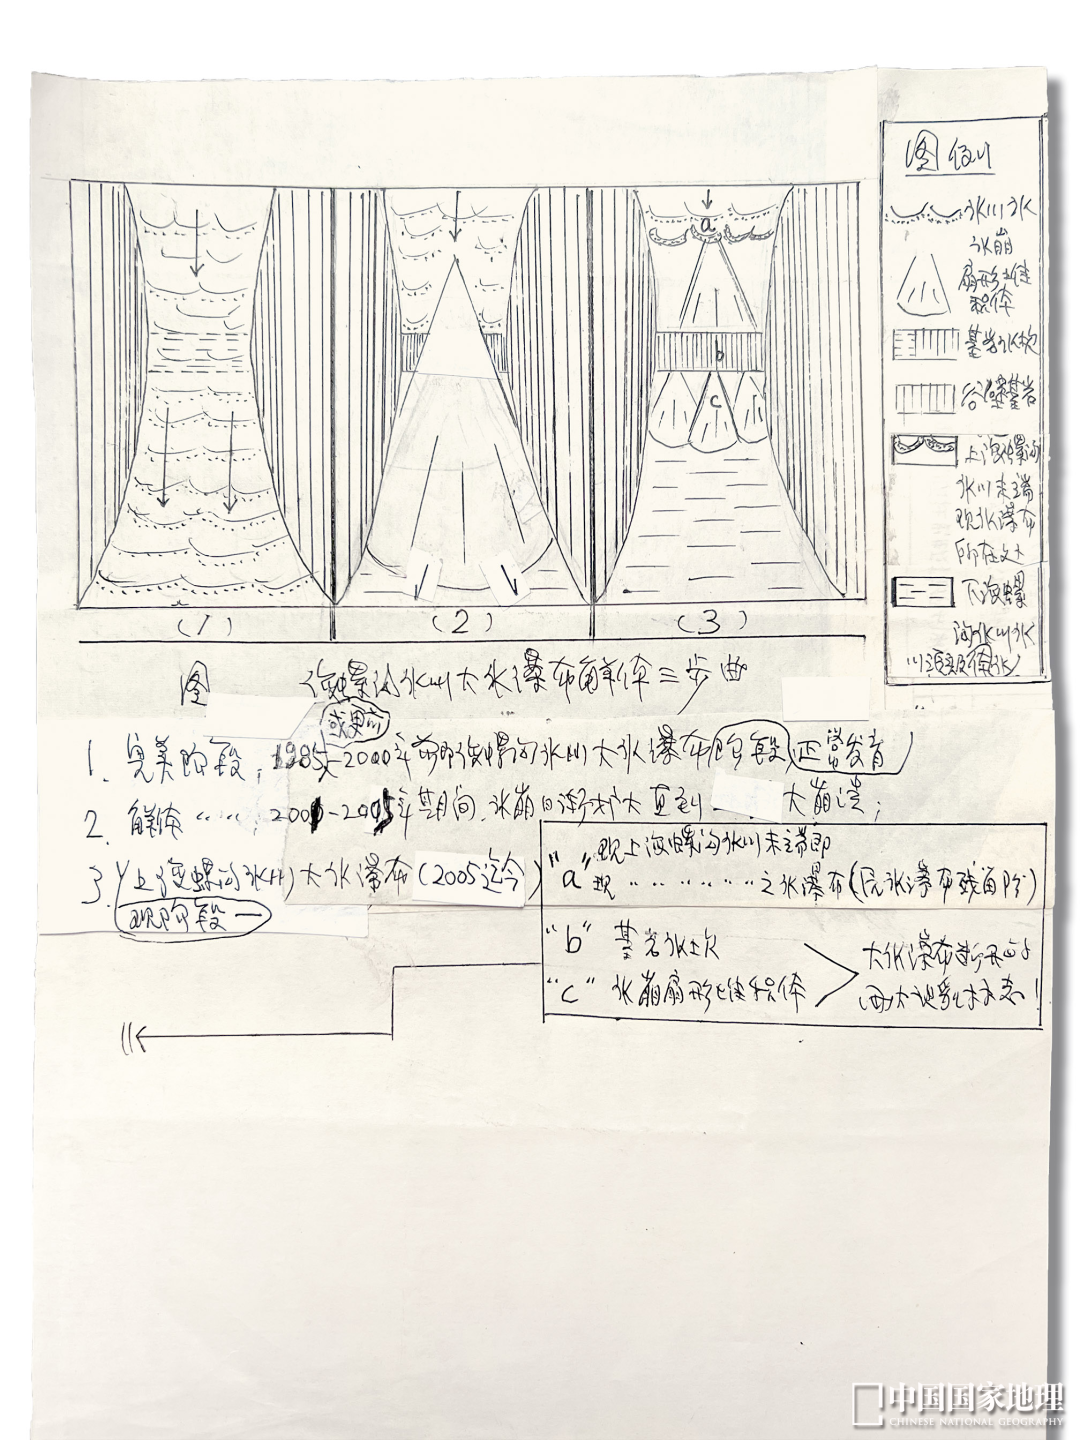 图例
冰川冰
冰崩
扇形堆
积体
基岩冰坎
谷壁基岩
上海螺沟
冰川末端
现冰瀑布
所在处
下海螺
沟冰川冰
a
b
c
(1)
(2)
(3)
图 海螺沟冰川大冰瀑布解体三步曲
或更前
1. 完美阶段；1985-2000年前即海螺沟冰川大冰瀑布阶段正常发育
2. 解体……；2001-2005年其间，冰崩日渐扩大直到 大崩溃；
3. 上海螺沟冰川大冰瀑布(2005迄今)
现阶段一
"a" 现上海螺沟冰川末端即
现………之冰瀑布(原冰瀑布残留阶)
"b" 基岩冰坎
"c" 冰崩扇形堆积体
大冰瀑布断开的
两大地貌标志！
中国国家地理
CHINESE NATIONAL GEOGRAPHY